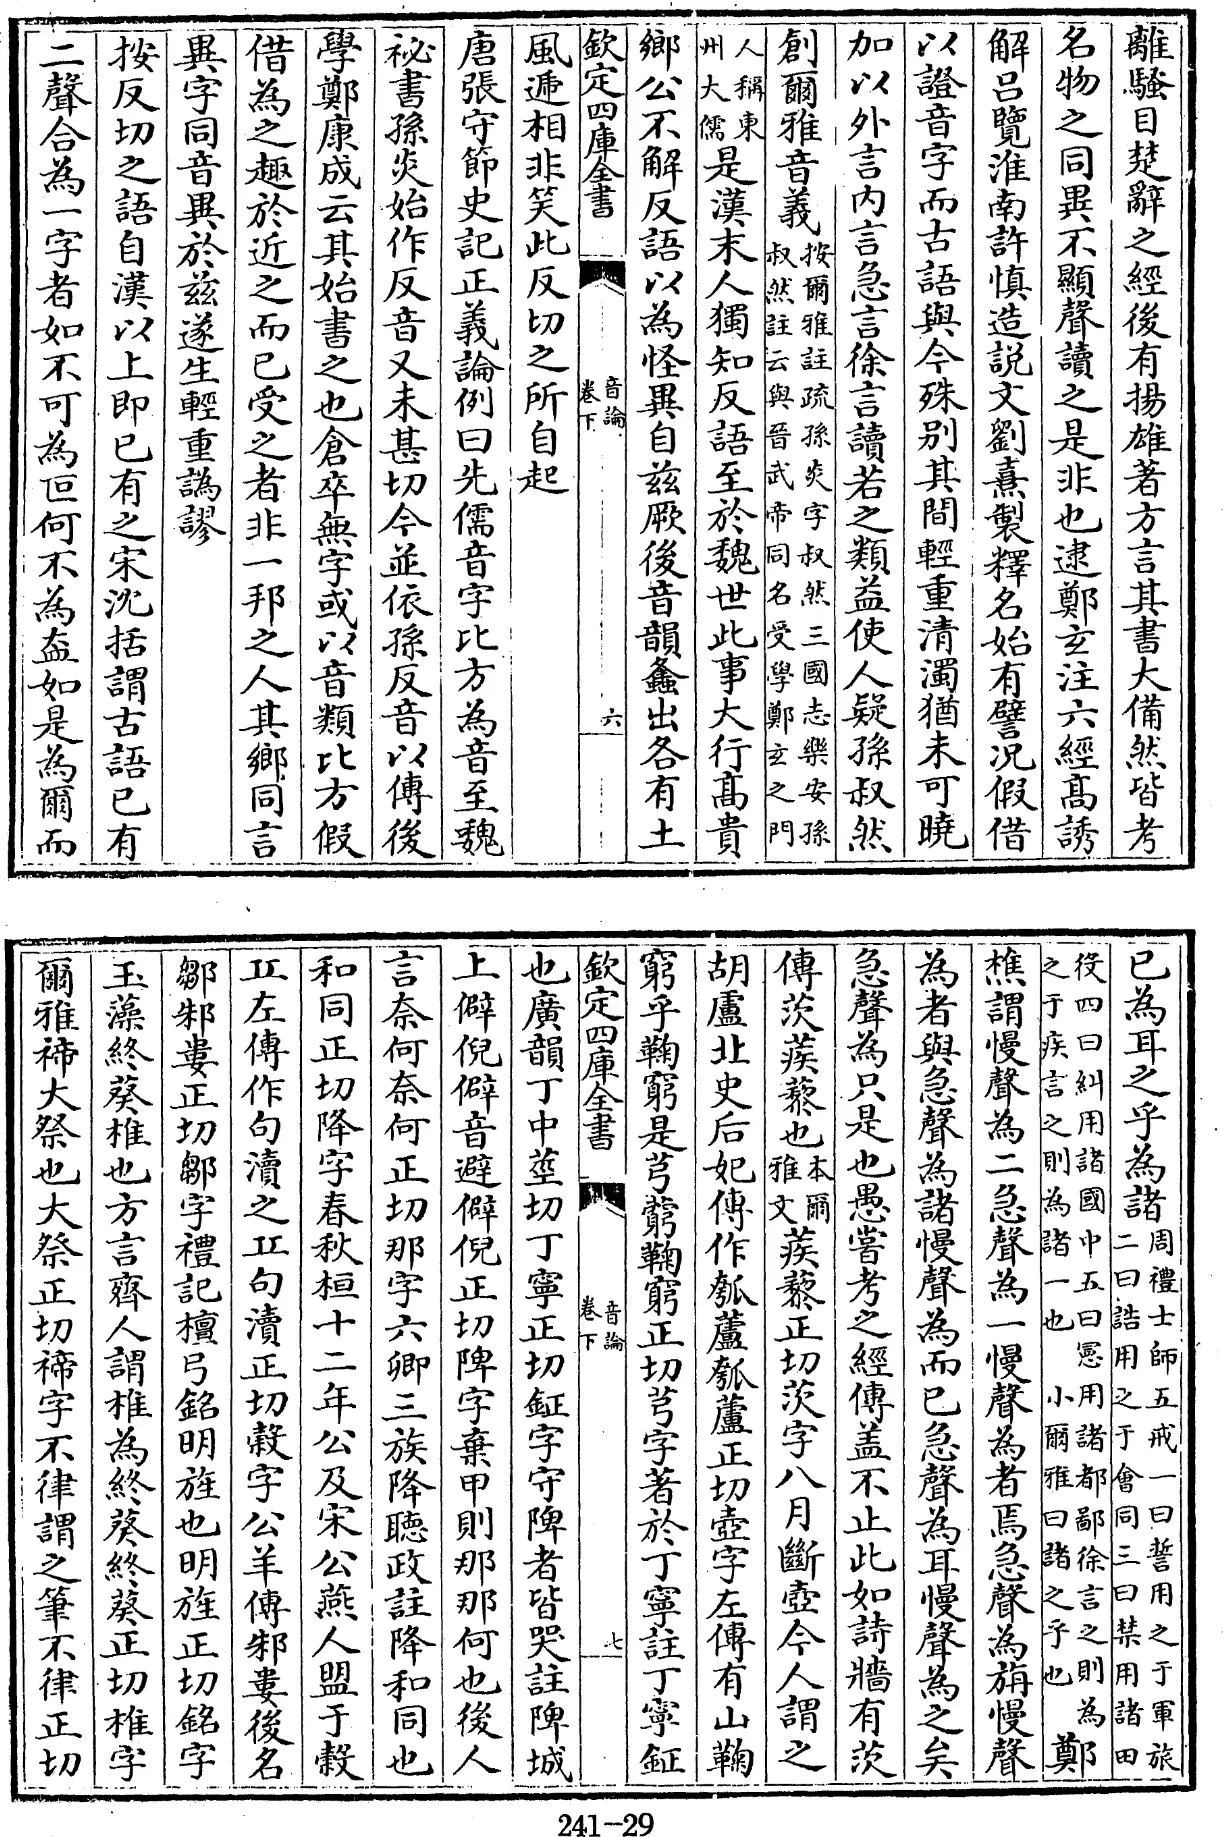 離騷目楚辭之經後有揚雄著方言其書大備然皆考
名物之同異不顯聲讀之是非也逮鄭玄注六經高誘
解呂覽淮南許慎造説文劉熹製釋名始有譬況假借
以證音字而古語與今殊别其間輕重清濁猶未可曉
加以外言内言急言徐言讀若之類益使人疑孫叔然
創爾雅音義按爾雅註疏孫炎字叔然三國志樂安孫
叔然註云與晉武帝同名受學鄭玄之門
人稱東
州大儒是漢末人獨知反語至於魏世此事大行髙貴
鄉公不解反語以為怪異自兹厥後音韻鑫出各有土
欽定四庫全書
音論
卷下
六
風逓相非笑此反切之所自起
唐張守節史記正義論例曰先儒音字比方為音至魏
祕書孫炎始作反音又未甚切今並依孫反音以傳後
學鄭康成云其始書之也倉卒無字或以音類比方假
借為之趣於近之而已受之者非一邦之人其鄉同言
異字同音異於兹遂生輕重譌謬
按反切之語自漢以上即已有之宋沈括謂古語已有
二聲合為一字者如不可為叵何不為盍如是為爾而
已為耳之乎為諸周禮士師五戒一曰誓用之于軍旅
二曰誥用之于會同三曰禁用諸田
役四曰糾用諸國中五曰憲用諸都鄙徐言之則為
之于疾言之則為諸一也 小爾雅曰諸之乎也 鄭
樵謂慢聲為二急聲為一慢聲為者焉急聲為旃慢聲
為者與急聲為諸慢聲為而已急聲為耳慢聲為之矣
急聲為只是也愚嘗考之經傳盖不止此如詩牆有茨
傳茨蒺藜也本爾
雅文蒺藜正切茨字八月斷壺今人謂之
胡盧北史后妃傳作瓠蘆瓠蘆正切壺字左傳有山鞠
窮乎鞠窮是芎藭鞠窮正切芎字著於丁寧註丁寧鉦
欽定四庫全書
音論
卷下
七
也廣韻丁中莖切丁寧正切鉦字守陴者皆哭註陴城
上僻倪僻音避僻倪正切陴字棄甲則那那何也後人
言奈何奈何正切那字六卿三族降聽政註降和同也
和同正切降字春秋桓十二年公及宋公燕人盟于穀
丘左傳作句瀆之丘句瀆正切穀字公羊傳邾婁後名
鄒邾婁正切鄒字禮記檀弓銘明旌也明旌正切銘字
玉藻終葵椎也方言齊人謂椎為終葵終葵正切椎字
爾雅禘大祭也大祭正切禘字不律謂之筆不律正切
241-29